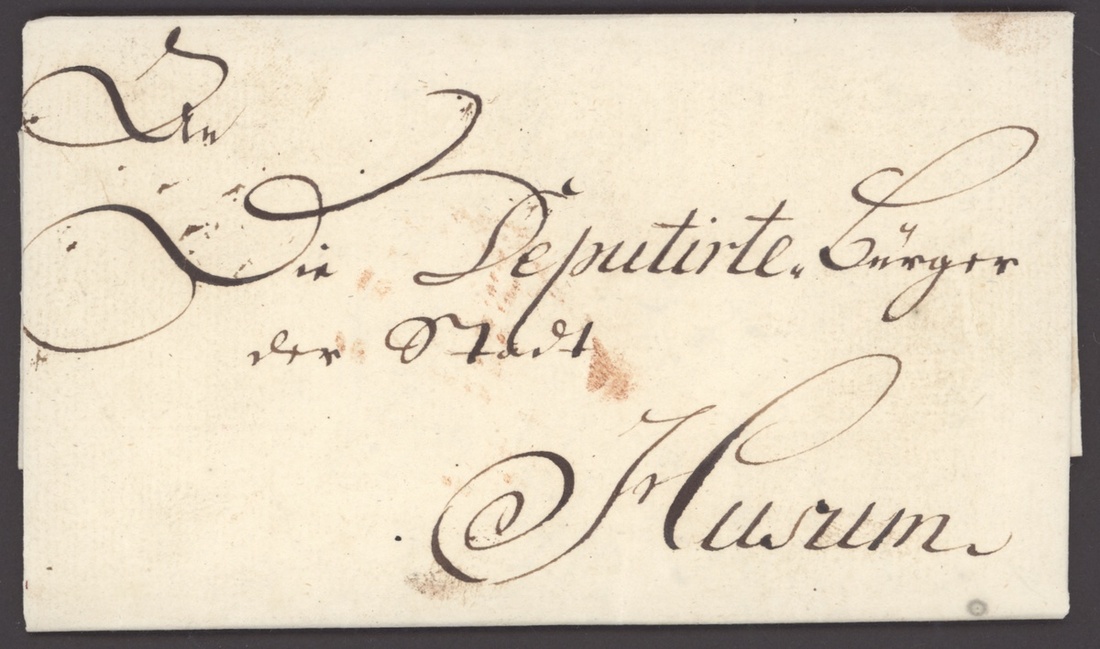 An
Die Deputirte Bürger
der Stadt
Husum.